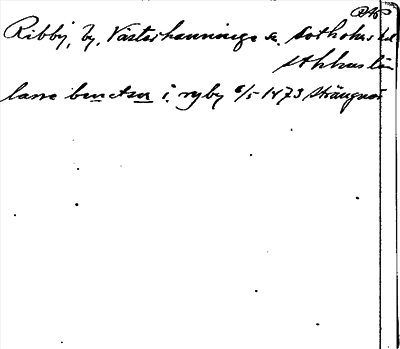 Ribby, by, Västerhanninge sn. Sotholms hd
Sthlms län
lasse benctson i ryby 6/5 1473 Strängnäs